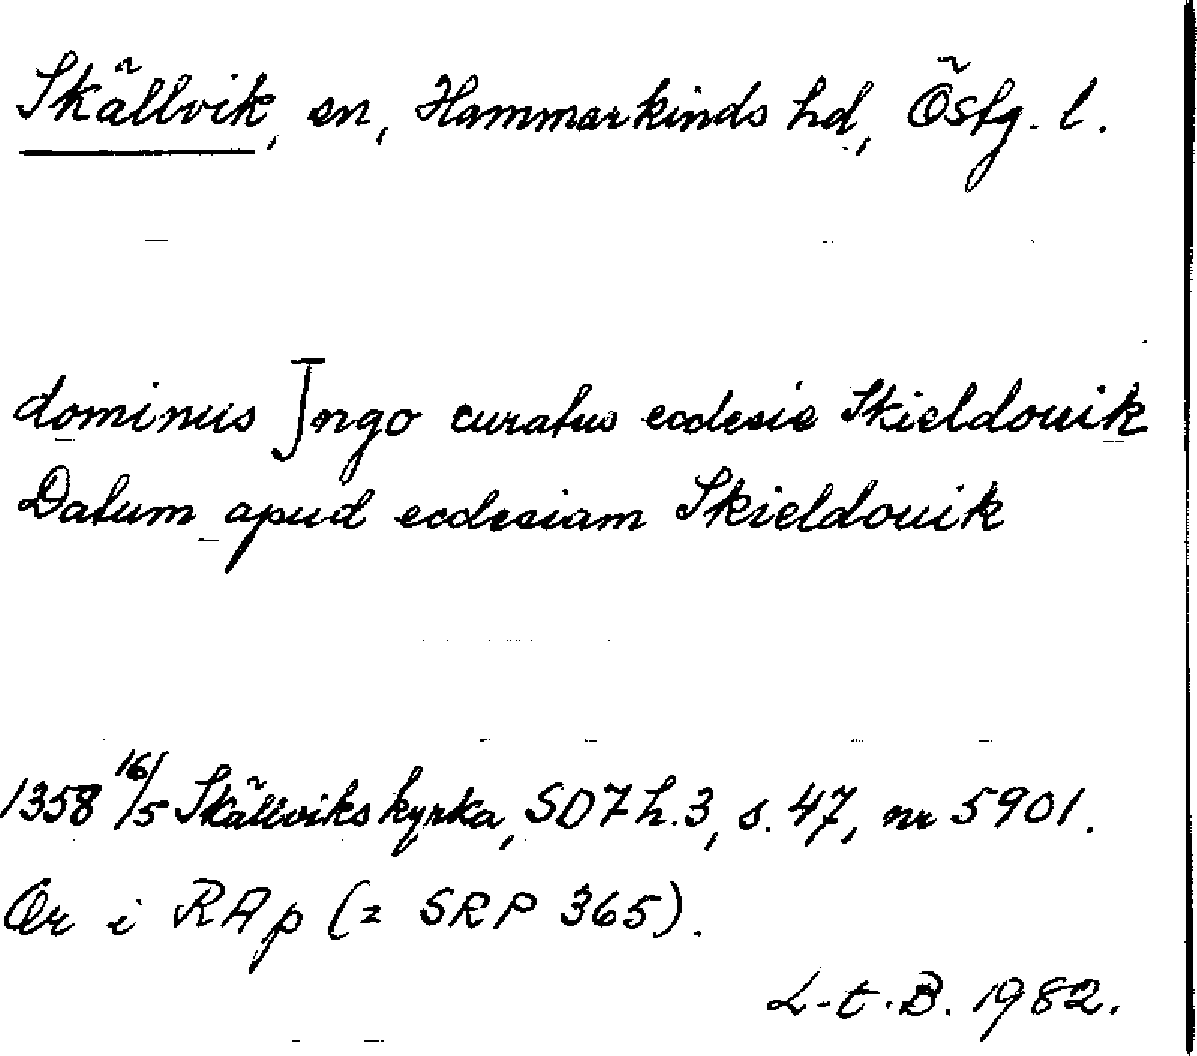 Skällvik, sn, Hammarkinds hd, Östg. l.
dominus Jngo curatus ecclesie Skieldouik
Datum apud ecclesiam Skieldouik
1358 16/5 Skällviks kyrka, SD 7 h. 3, s. 47, nr 5901.
Or i RAp (= SRP 365).
L-t. B. 1982.